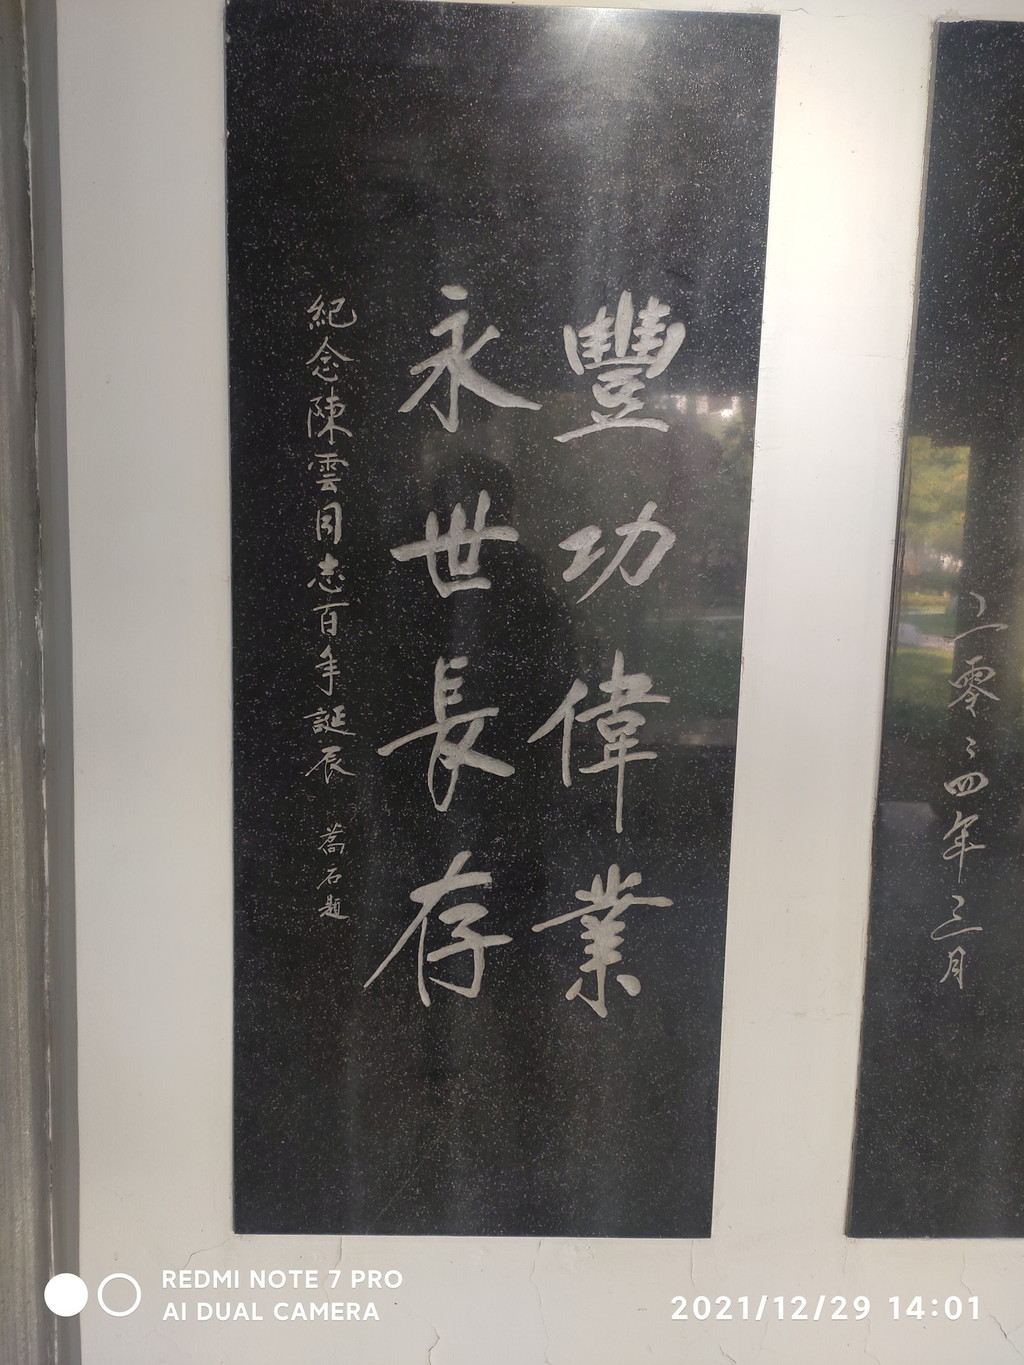 豐功偉業
永世長存
紀念陳雲同志百年誕辰 喬石題
二零零四年三月
REDMI NOTE 7 PRO
AI DUAL CAMERA
2021/12/29 14:01